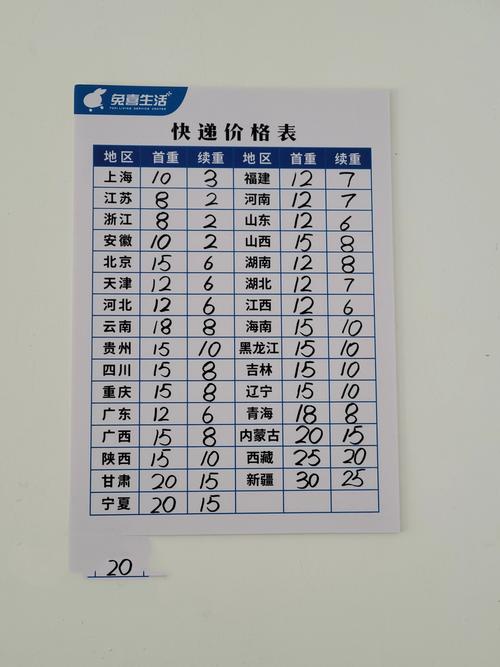 兔喜生活
TUXI LIVING SERVICE CENTER
快递价格表
地区 首重 续重 地区 首重 续重
上海 10 3 福建 12 7
江苏 8 2 河南 12 7
浙江 8 2 山东 12 6
安徽 10 2 山西 15 8
北京 15 6 湖南 12 8
天津 12 6 湖北 12 7
河北 12 6 江西 12 6
云南 18 8 海南 15 10
贵州 15 10 黑龙江 15 10
四川 15 8 吉林 15 10
重庆 15 8 辽宁 15 10
广东 12 6 青海 18 8
广西 15 8 内蒙古 20 15
陕西 15 10 西藏 25 20
甘肃 20 15 新疆 30 25
宁夏 20 15
20